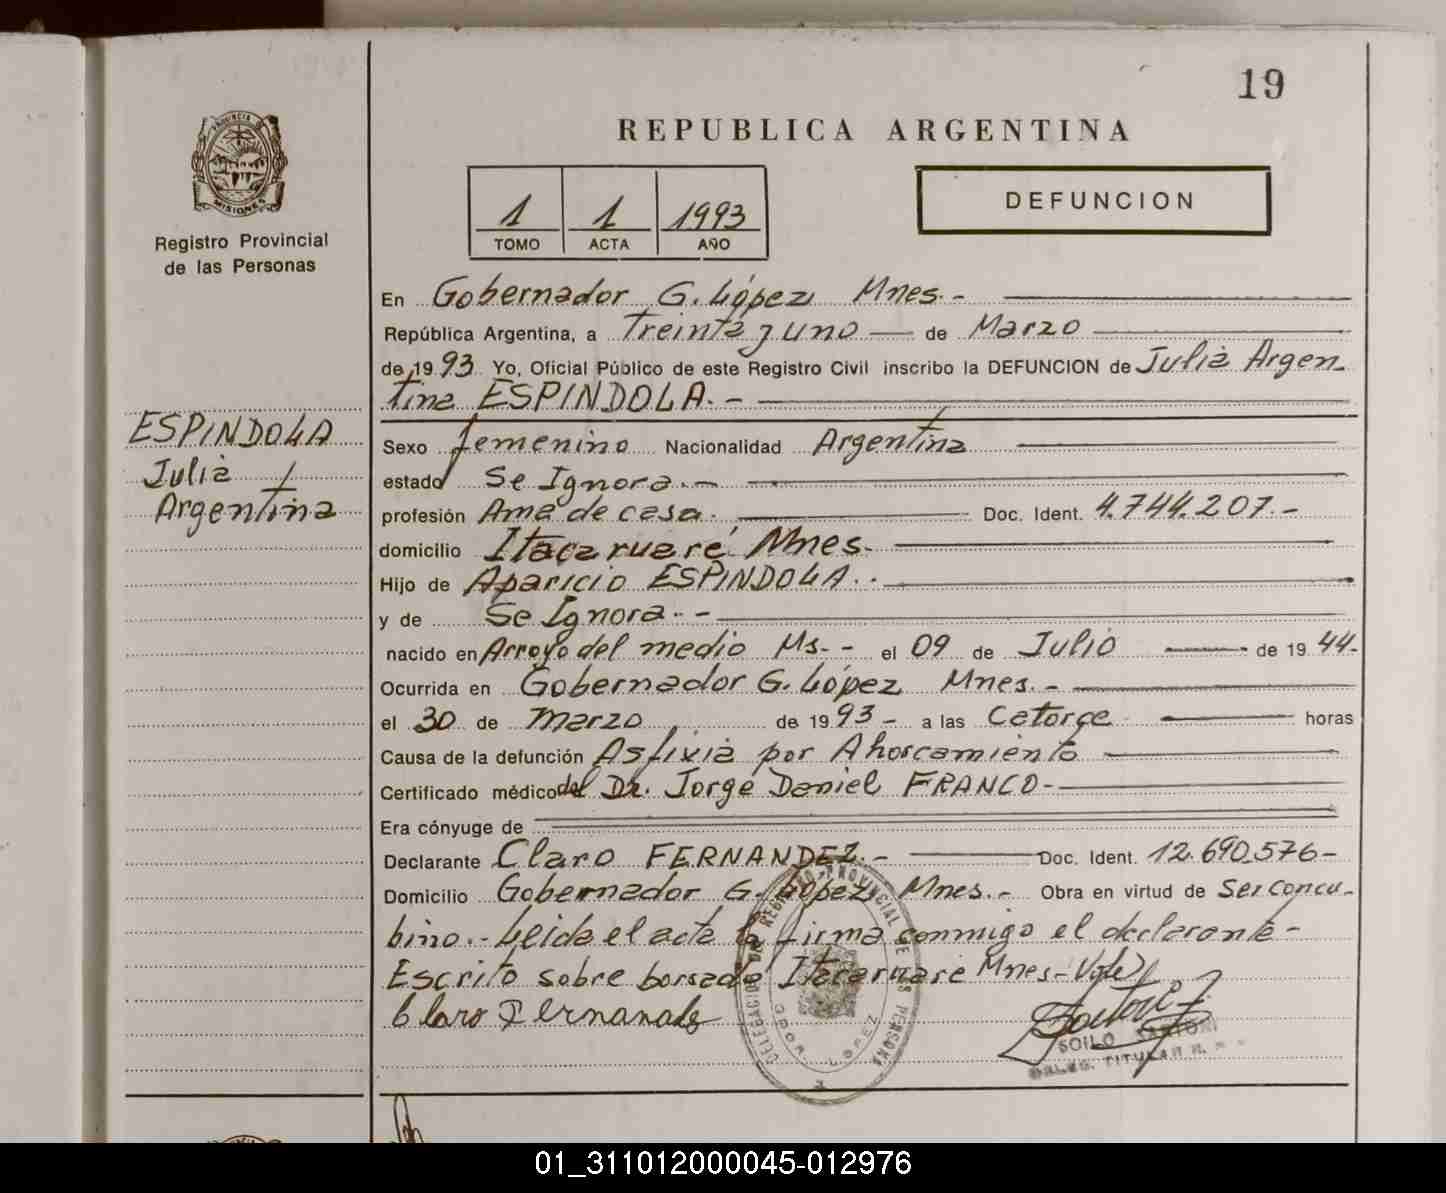 19
REPUBLICA ARGENTINA
PROVINCIA DE
MISIONES
Registro Provincial
de las Personas
1 1 1993
TOMO ACTA AÑO
DEFUNCION
En Gobernador G. López Mnes.-
República Argentina, a Treinta y uno de Marzo
de 1993 Yo, Oficial Público de este Registro Civil inscribo la DEFUNCION de Julia Argen-
tina ESPINDOLA.-
ESPINDOLA
Julia
Argentina
Sexo femenino Nacionalidad Argentina
estado Se Ignora.-
profesión Ama de casa. Doc. Ident. 4.744.207.-
domicilio Itacaruaré Mnes.
Hijo de Aparicio ESPINDOLA..
y de Se Ignora.-
nacido en Arroyo del medio Ms.- el 09 de Julio de 1944-
Ocurrida en Gobernador G. López Mnes.-
el 30 de marzo de 1993- a las Catorce horas
Causa de la defunción Asfixia por Ahorcamiento
Certificado médico del Dr. Jorge Daniel FRANCO-
Era cónyuge de
Declarante Claro FERNANDEZ.- Doc. Ident. 12.690.576-
Domicilio Gobernador G. López Mnes.- Obra en virtud de Ser concu-
bino.- Leida el acta la firma conmigo el declarante-
Escrito sobre borrado Itacaruaré Mnes- Vale
Claro Fernandes
DELEGACION DEL REGISTRO PROVINCIAL DE LAS PERSONAS
GDOR. LOPEZ
SOILO SARTORI
DELEG. TITULAR R.
01_311012000045-012976